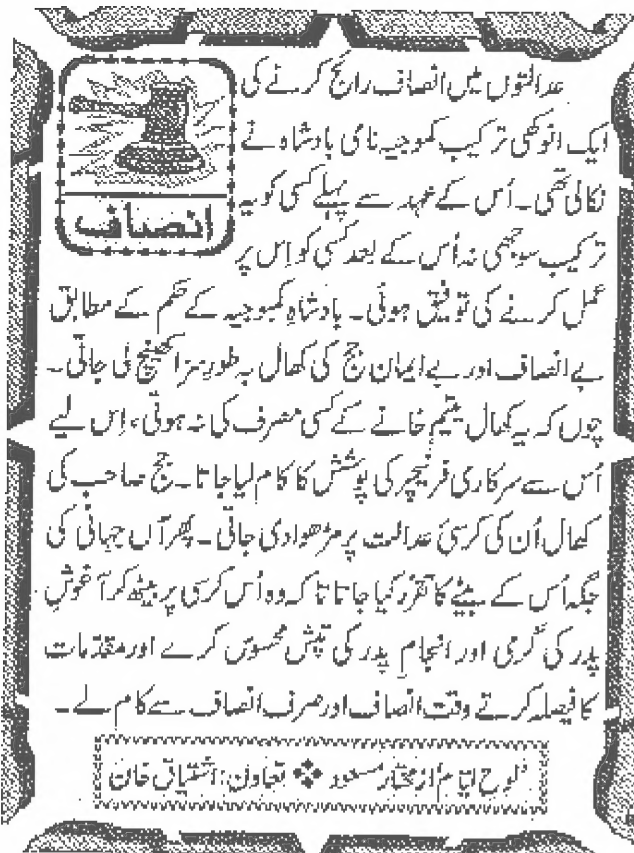 انصاف
عدالتوں میں انصاف رائج کرنے کی
ایک انوکھی ترکیب کمبوجیہ نامی بادشاہ نے
نکالی تھی۔ اُس کے عہد سے پہلے کسی کو یہ
ترکیب سوجھی نہ اُس کے بعد کسی کو اِس پر
عمل کرنے کی توفیق ہوئی۔ بادشاہ کمبوجیہ کے حکم کے مطابق
بے انصاف اور بے ایمان جج کی کھال بہ طورِ سزا کھینچ لی جاتی۔
چوں کہ یہ کھال یتیم خانے کے کسی مصرف کی نہ ہوتی، اِس لیے
اُس سے سرکاری فرنیچر کی پوشش کا کام لیا جاتا۔ جج صاحب کی
کھال اُن کی کرسیٔ عدالت پر مڑھوا دی جاتی۔ پھر آں جہانی کی
جگہ اُس کے بیٹے کا تقرّر کیا جاتا تا کہ وہ اُس کرسی پر بیٹھ کر آغوشِ
پدر کی گرمی اور انجامِ پدر کی تپش محسوس کرے اور مقدّمات
کا فیصلہ کرتے وقت انصاف اور صرف انصاف سے کام لے۔
"لوحِ ایّام" از مختار مسعود ❖ تعاون: اشتیاق خان